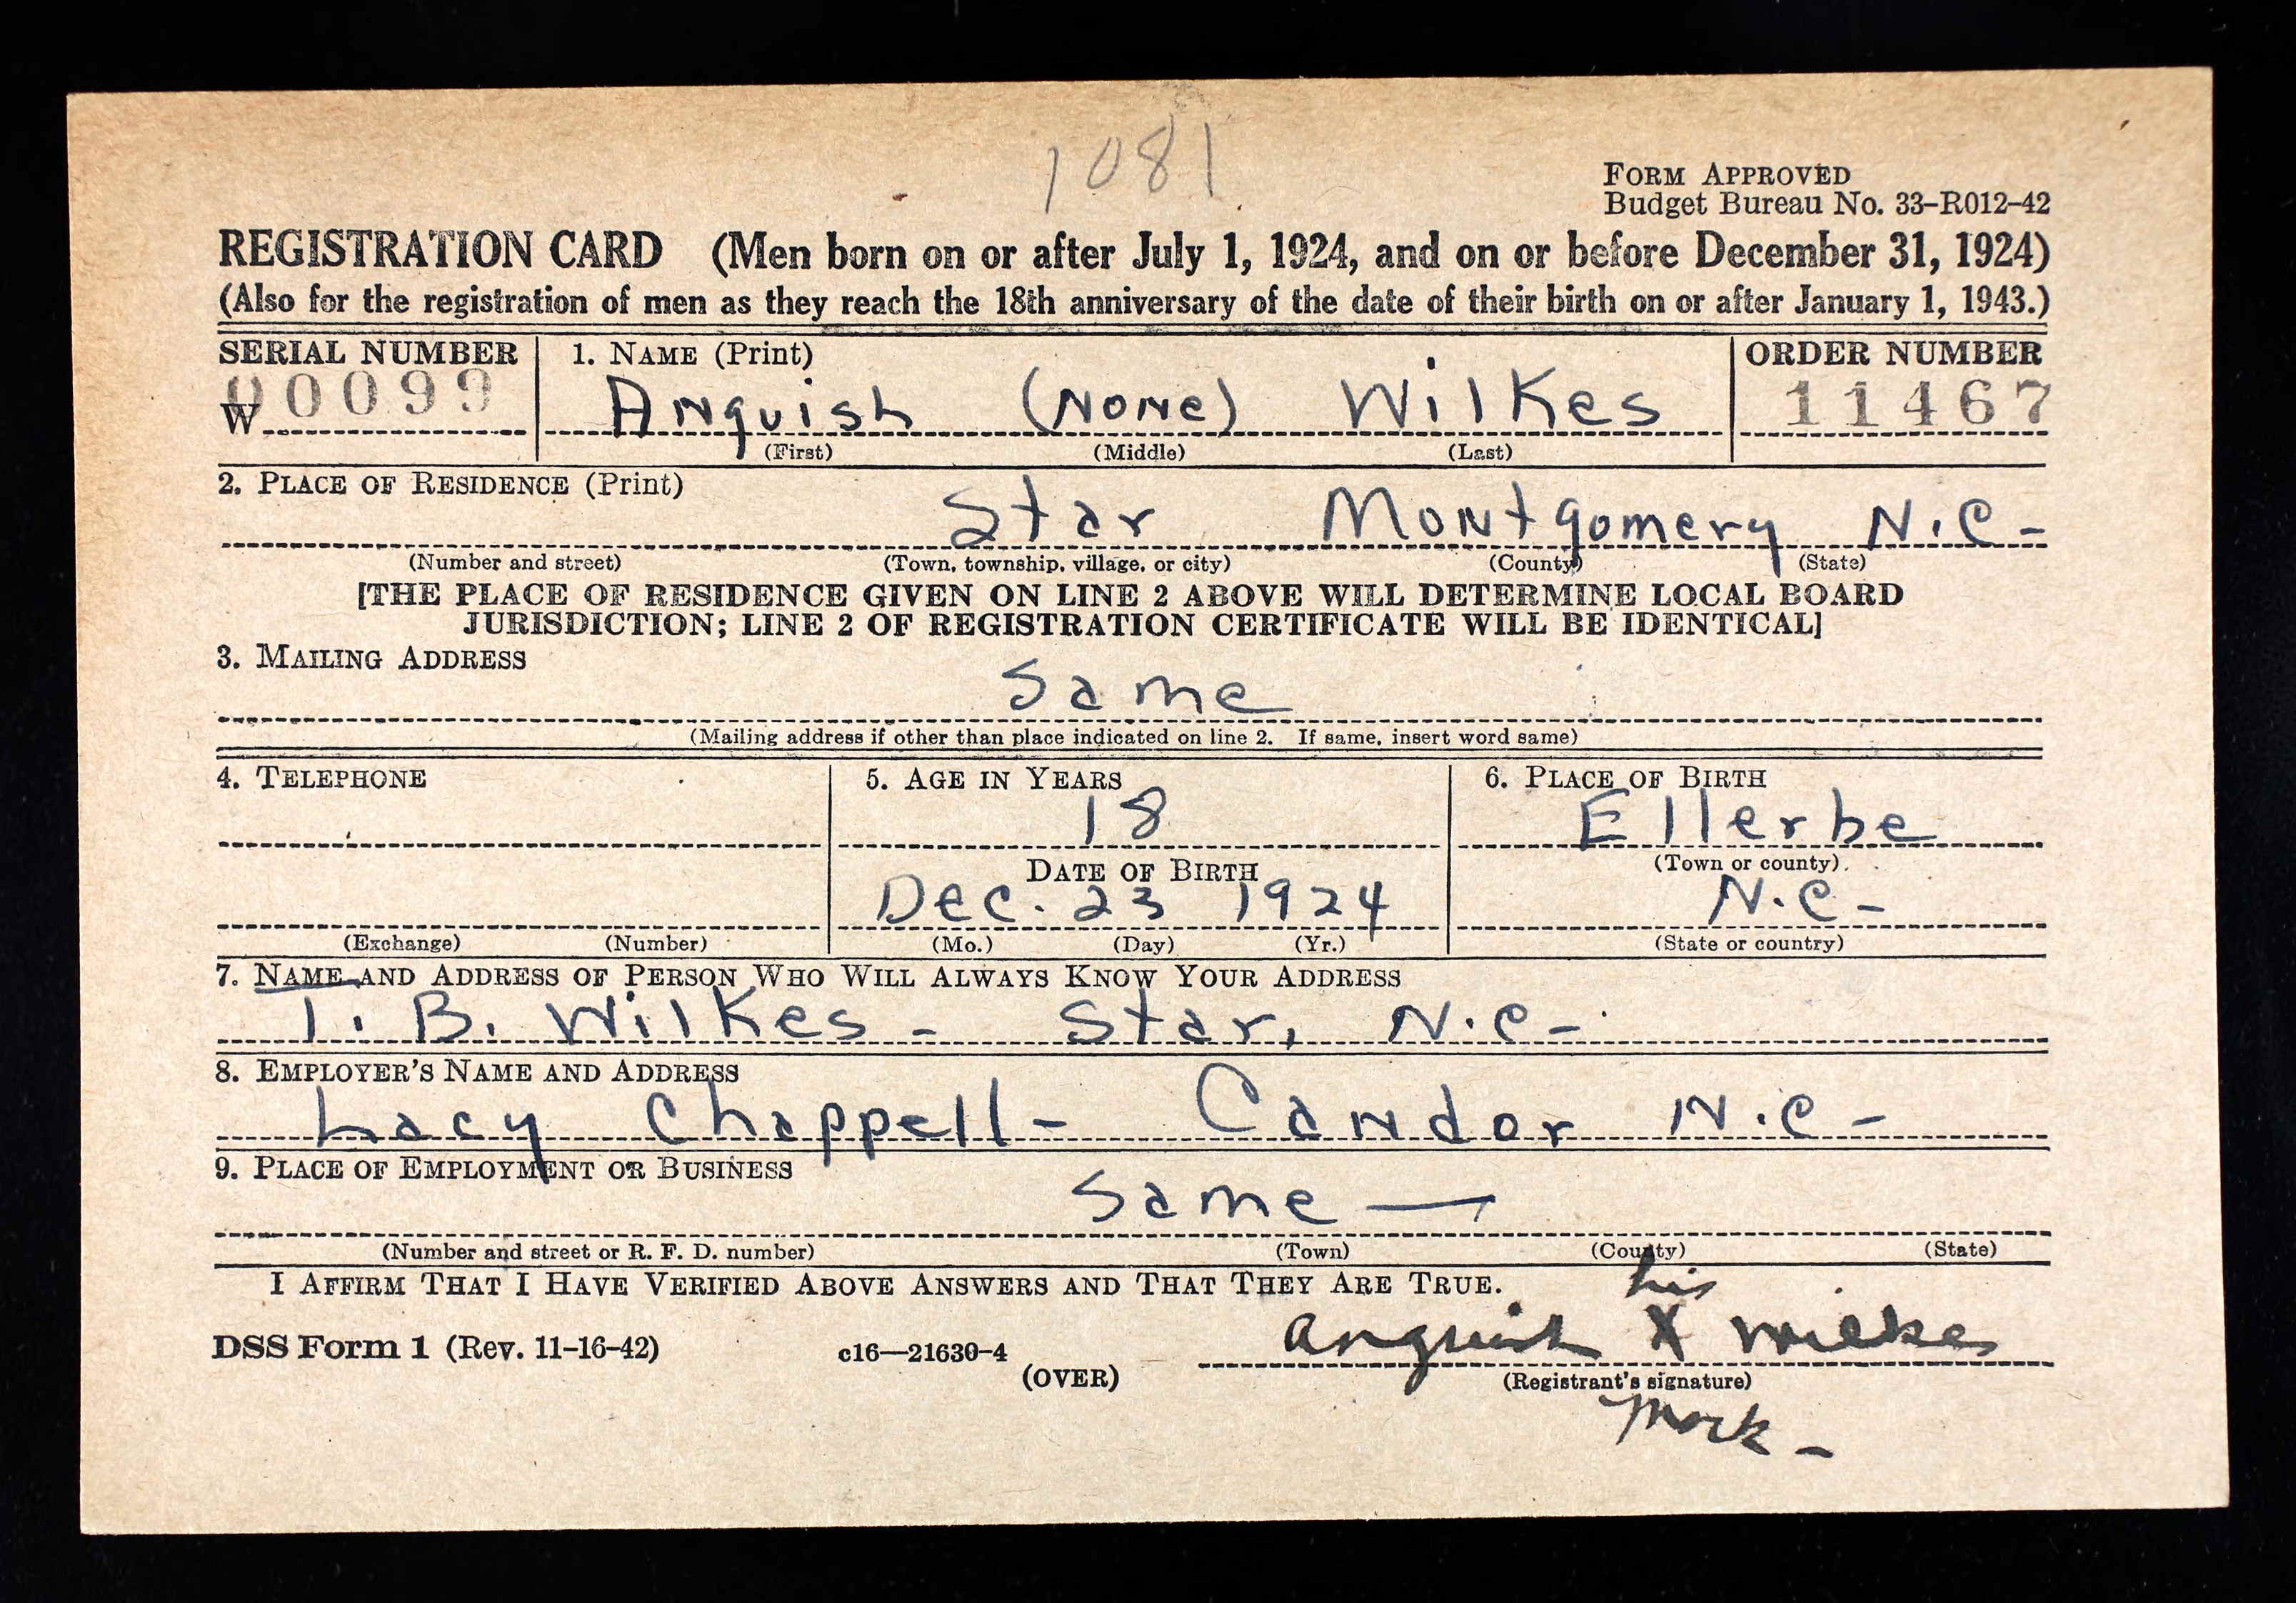 1081
FORM APPROVED
Budget Bureau No. 33-R012-42
REGISTRATION CARD (Men born on or after July 1, 1924, and on or before December 31, 1924)
(Also for the registration of men as they reach the 18th anniversary of the date of their birth on or after January 1, 1943.)
SERIAL NUMBER 1. NAME (Print) ORDER NUMBER
W 00099 Anguish (None) Wilkes 11467
(First) (Middle) (Last)
2. PLACE OF RESIDENCE (Print)
Star Montgomery N.C-
(Number and street) (Town, township, village, or city) (County) (State)
[THE PLACE OF RESIDENCE GIVEN ON LINE 2 ABOVE WILL DETERMINE LOCAL BOARD
JURISDICTION; LINE 2 OF REGISTRATION CERTIFICATE WILL BE IDENTICAL]
3. MAILING ADDRESS
Same
(Mailing address if other than place indicated on line 2. If same, insert word same)
4. TELEPHONE 5. AGE IN YEARS 6. PLACE OF BIRTH
18 Ellerbe
DATE OF BIRTH (Town or county)
Dec. 23 1924 N.C-
(Exchange) (Number) (Mo.) (Day) (Yr.) (State or country)
7. NAME AND ADDRESS OF PERSON WHO WILL ALWAYS KNOW YOUR ADDRESS
T. B. Wilkes - Star, N.C-
8. EMPLOYER'S NAME AND ADDRESS
Lacy Chappell - Candor N.C-
9. PLACE OF EMPLOYMENT OR BUSINESS
Same —
(Number and street or R. F. D. number) (Town) (County) (State)
I AFFIRM THAT I HAVE VERIFIED ABOVE ANSWERS AND THAT THEY ARE TRUE.
his
DSS Form 1 (Rev. 11-16-42) c16—21630-4 Anguish X Wilkes
(OVER) (Registrant's signature)
Mark -